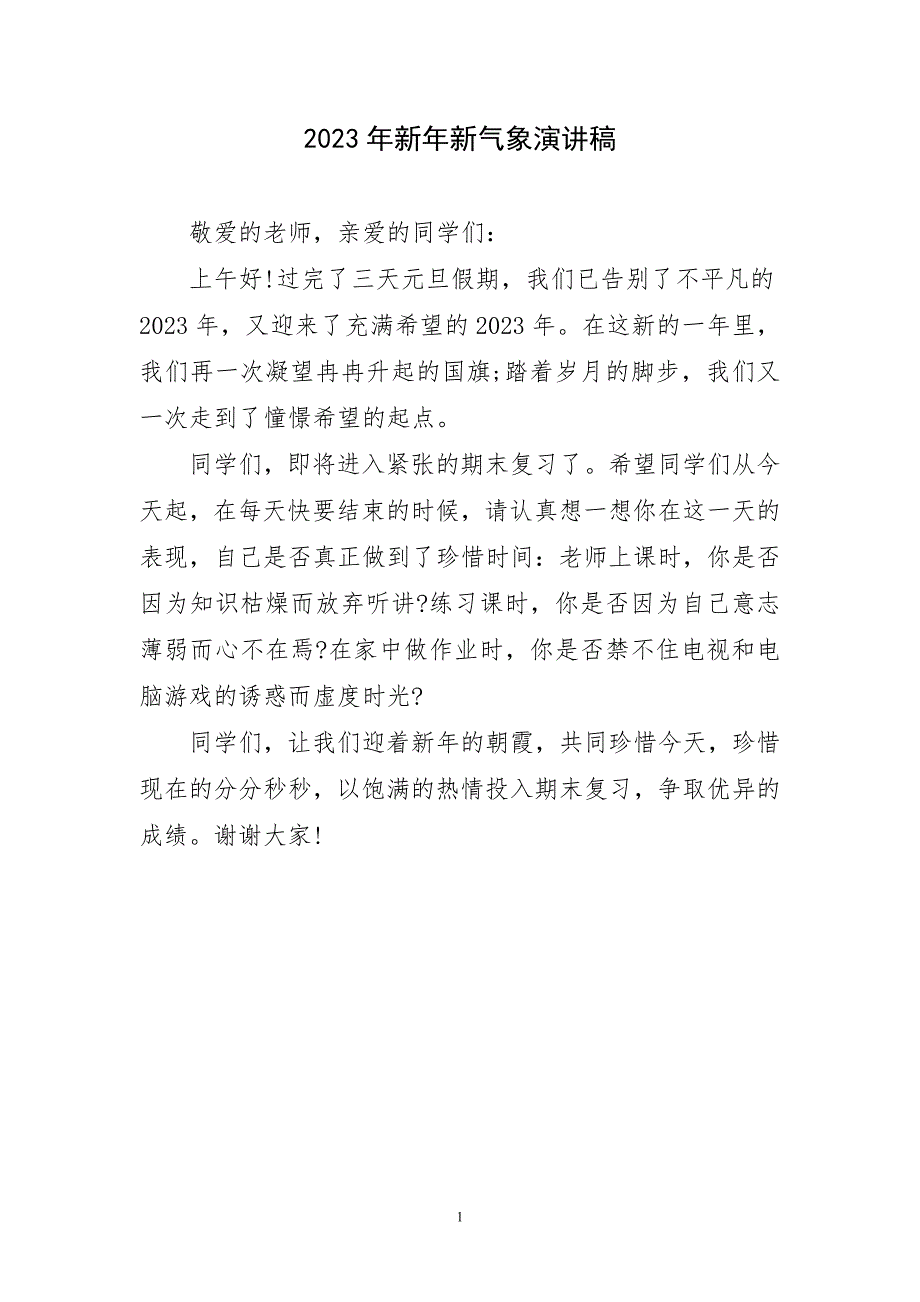 2023年新年新气象演讲稿
敬爱的老师，亲爱的同学们：
上午好!过完了三天元旦假期，我们已告别了不平凡的
2023年，又迎来了充满希望的2023年。在这新的一年里，
我们再一次凝望冉冉升起的国旗;踏着岁月的脚步，我们又
一次走到了憧憬希望的起点。
同学们，即将进入紧张的期末复习了。希望同学们从今
天起，在每天快要结束的时候，请认真想一想你在这一天的
表现，自己是否真正做到了珍惜时间：老师上课时，你是否
因为知识枯燥而放弃听讲?练习课时，你是否因为自己意志
薄弱而心不在焉?在家中做作业时，你是否禁不住电视和电
脑游戏的诱惑而虚度时光?
同学们，让我们迎着新年的朝霞，共同珍惜今天，珍惜
现在的分分秒秒，以饱满的热情投入期末复习，争取优异的
成绩。谢谢大家!
1